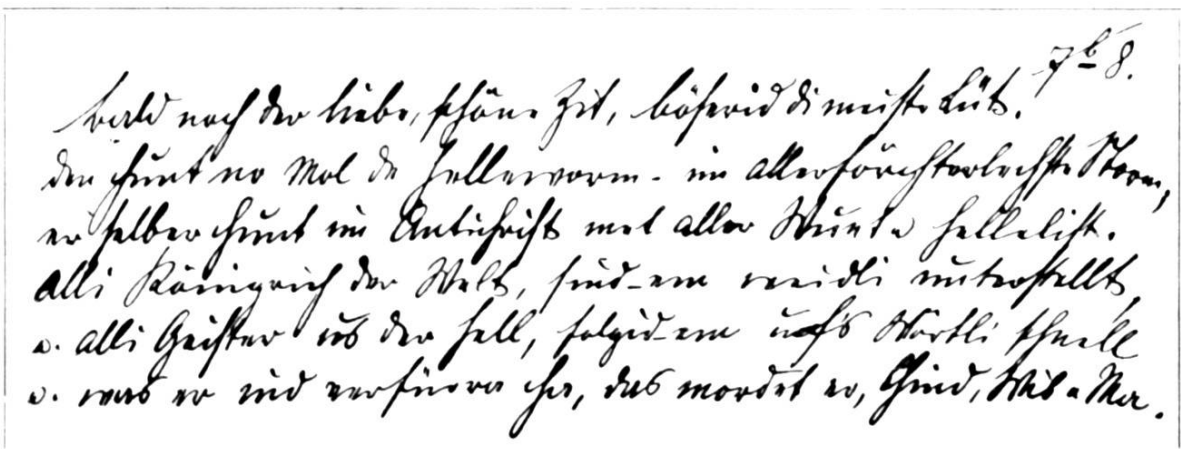 7 b 8.
bald noch der liebe, schöne Zit, böserid di meiste Lüt.
den chunt no Mol de Helleworm - im allerförchterlechste Storm,
er selber chunt im Antichrist met aller Wunt e Hellelist.
Alli Königrich der Welt, sind-em weidli unterstellt,
u. alli Geister us der Hell, folgid-em ufs Wörtli schnell
u. was er nid verfüera cha, das mordet er, Chind, Wib u Ma.